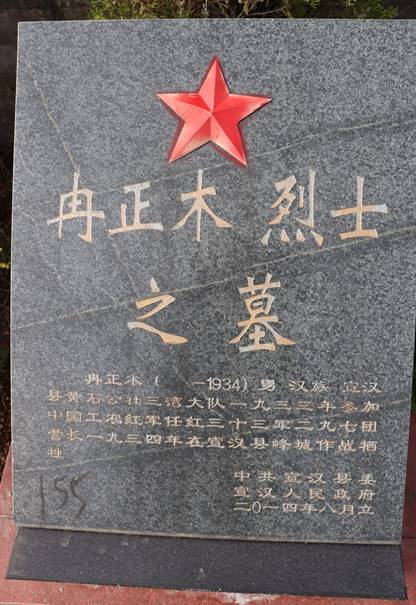 冉正木 烈士
之墓
冉正木（ —1934）男 汉族 宣汉
县黄石公社三湾大队一九三三年参加
中国工农红军任红三十三军二九七团
营长一九三四年在宣汉县峰城作战牺
牲
中共宣汉县委
宣汉人民政府
二〇一四年八月立
155